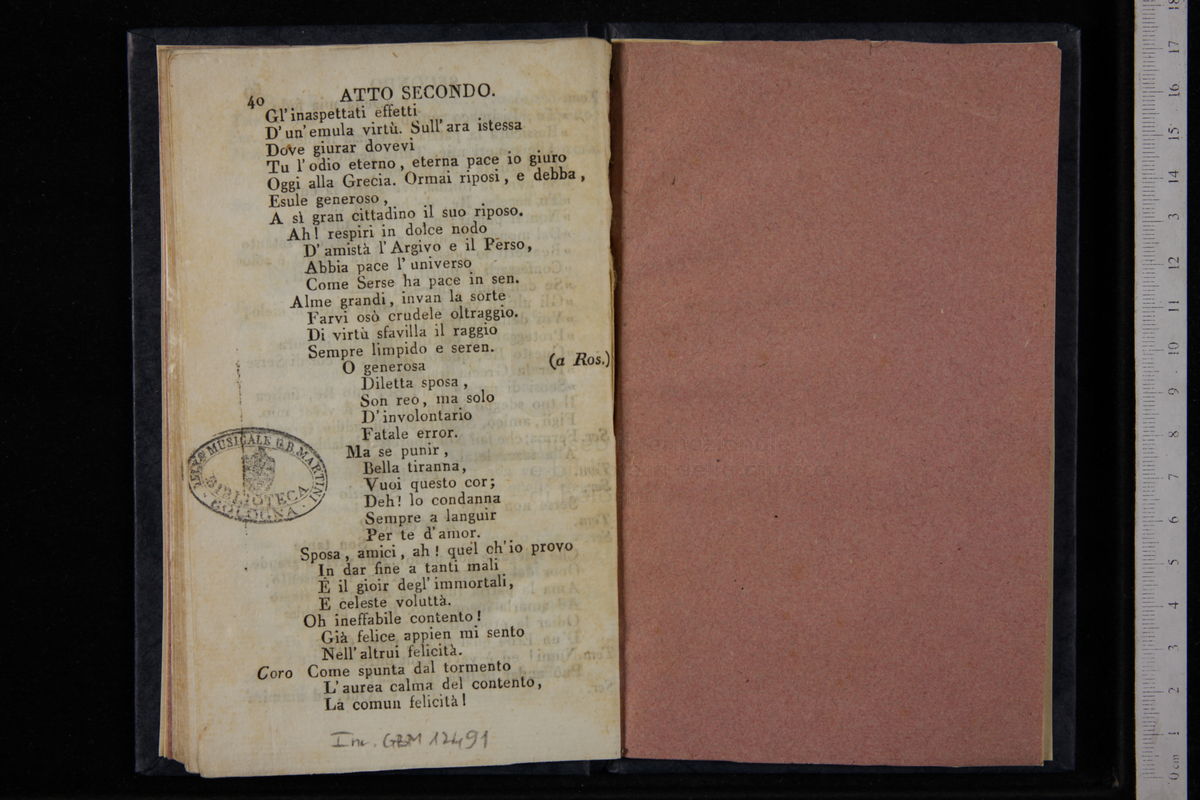 40
ATTO SECONDO.
Gl'inaspettati effetti
D'un'emula virtù. Sull'ara istessa
Dove giurar dovevi
Tu l'odio eterno, eterna pace io giuro
Oggi alla Grecia. Ormai riposi, e debba,
Esule generoso,
A sì gran cittadino il suo riposo.
Ah! respiri in dolce nodo
D'amistà l'Argivo e il Perso,
Abbia pace l'universo
Come Serse ha pace in sen.
Alme grandi, invan la sorte
Farvi osò crudele oltraggio.
Di virtù sfavilla il raggio
Sempre limpido e seren.
O generosa (a Ros.)
Diletta sposa,
Son reo, ma solo
D'involontario
Fatale error.
Ma se punir,
Bella tiranna,
Vuoi questo cor;
Deh! lo condanna
Sempre a languir
Per te d'amor.
Sposa, amici, ah! quel ch'io provo
In dar fine a tanti mali
È il gioir degl'immortali,
E celeste voluttà.
Oh ineffabile contento!
Già felice appien mi sento
Nell'altrui felicità.
Coro Come spunta dal tormento
L'aurea calma del contento,
La comun felicità!
MUSICALE G.B. MARTINI
BIBLIOTECA
BOLOGNA
Inv. GBM 12491
0 cm
1
2
3
4
5
6
7
8
9
10
11
12
13
14
15
16
17
18